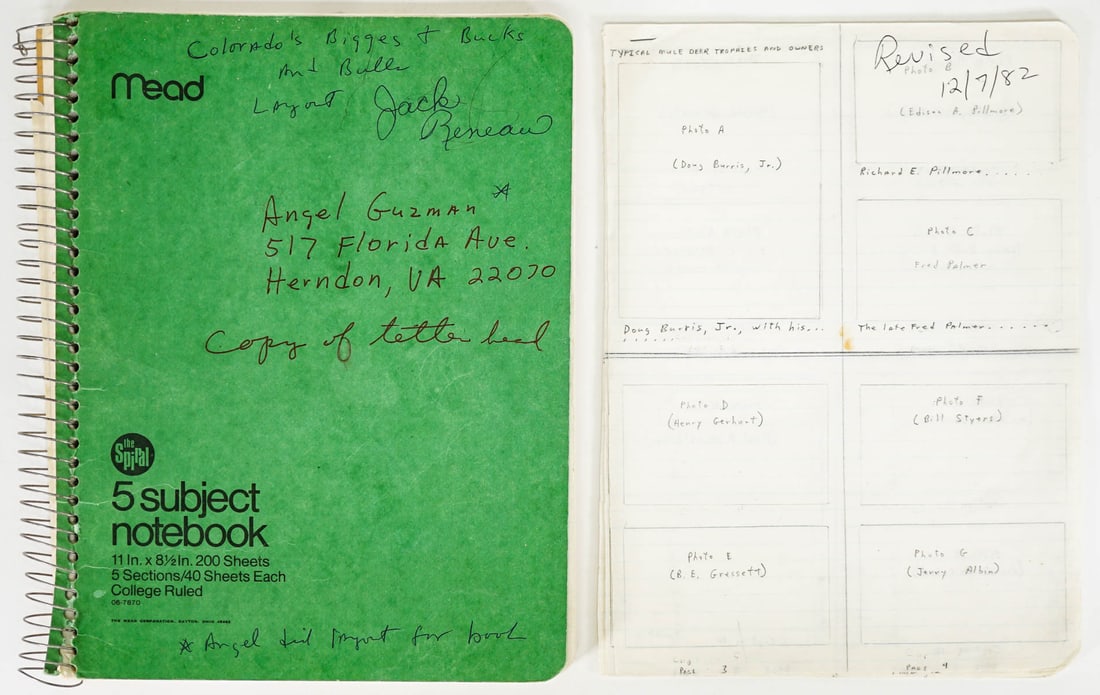 Colorado's Biggest Bucks
And Bulls
Layout Jack
Reneau
Mead
Angel Guzman *
517 Florida Ave.
Herndon, VA 22070
Copy of letter head
the
Spiral
5 subject
notebook
11 In. x 8½ In. 200 Sheets
5 Sections/40 Sheets Each
College Ruled
06-7870
THE MEAD CORPORATION, DAYTON, OHIO 45463
* Angel did layout for book
TYPICAL MULE DEER TROPHIES AND OWNERS
Photo A
(Doug Burris, Jr.)
Doug Burris, Jr., with his...
Revised
12/7/82
Photo B
(Edison A. Pillmore)
Richard E. Pillmore.....
Photo C
Fred Palmer
The late Fred Palmer.......
Photo D
(Henry Gerhart)
Photo E
(B. E. Gressett)
Page 3
Photo F
(Bill Styers)
Photo G
(Jerry Albin)
Page 4